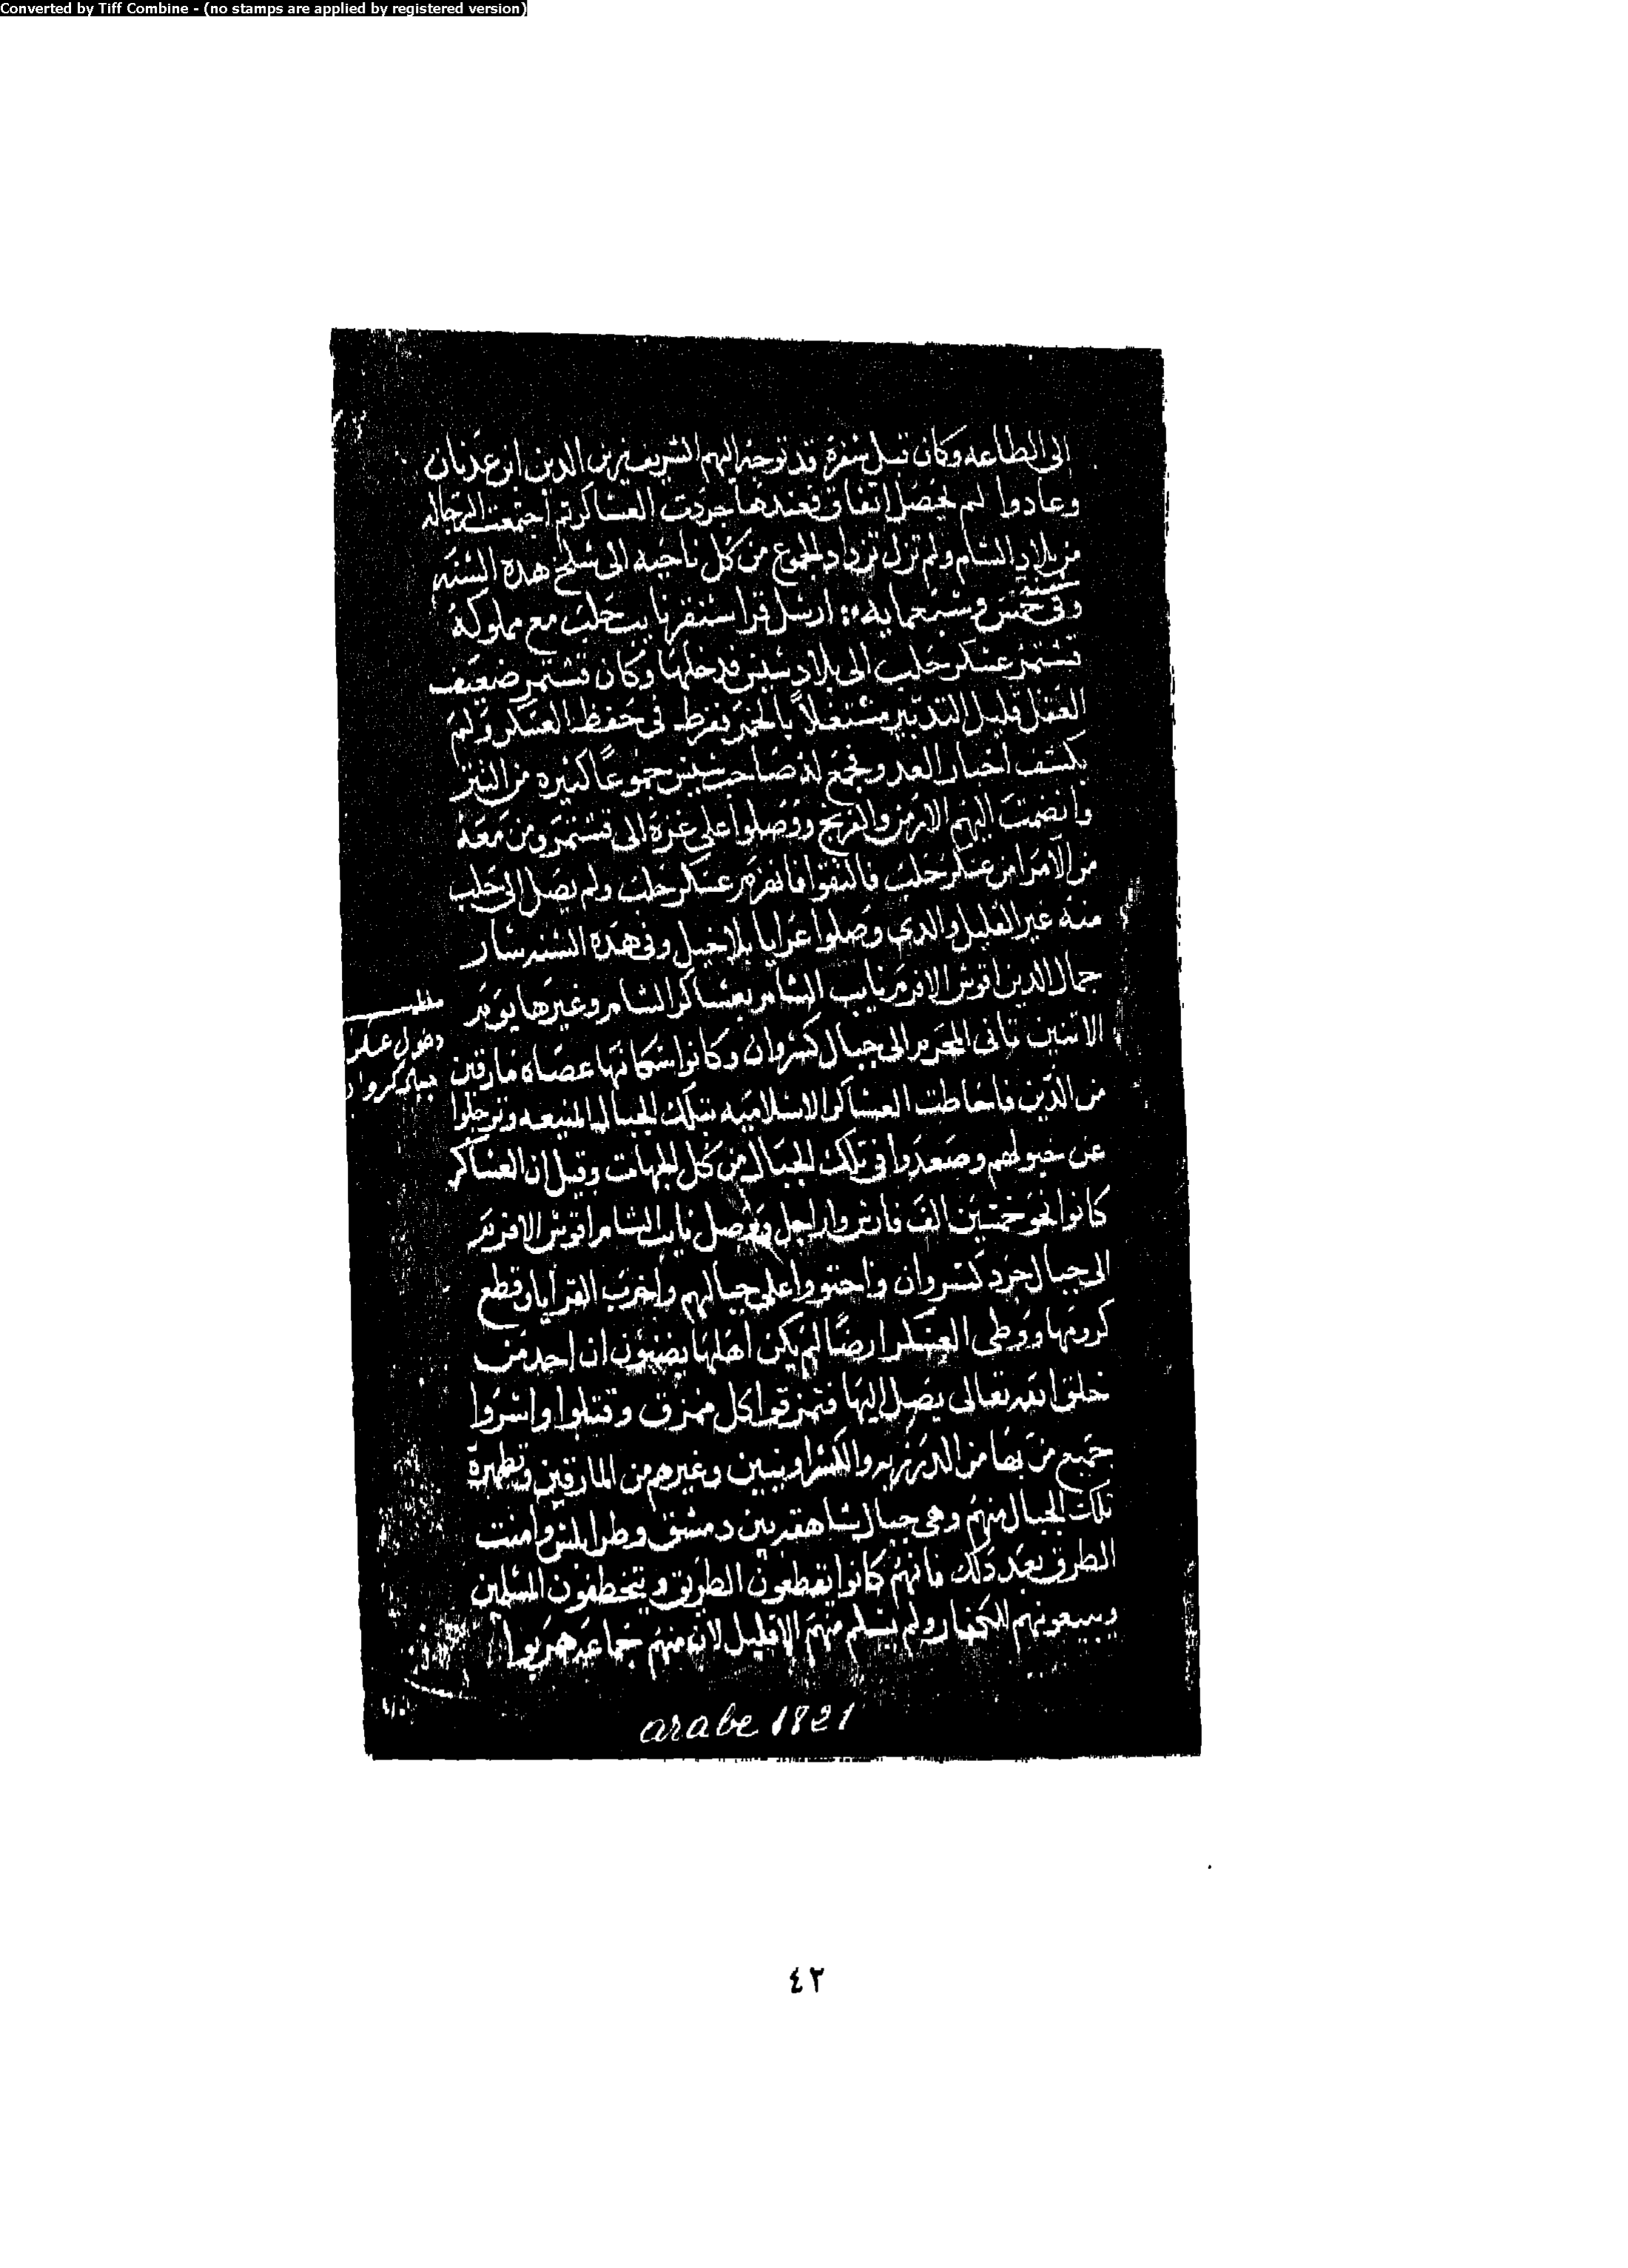 Converted by Tiff Combine - (no stamps are applied by registered version)
الى الطاعه وكان قبل سفره قد توجه اليهم الشريف زين الدين ابن عدنان
وعادوا لم يحصل اتفاق فعندها جردت العساكر ثم اجتمعت الرجاله
من بلاد الشام ولم تزل تزداد الجموع من كل ناحيه الى سلخ هذه السنه
وفى سنة خمس وسبعمايه ارسل قراسنقر نايب حلب مع مملوكه
قشتمر عسكر حلب الى بلاد سيس فدخلها وكان قشتمر ضعيف
العقل قليل التدبير مشتغلاً بالخمر ففرط فى حفظ العسكر ولم
يكشف اخبار العدو فجمع له صاحب سيس جموعًا كثيره من التتر
وانضمت اليهم الارمن والفرنج ووصلوا على غرة الى قشتمر ومن معه
من الامرا من عسكر حلب فالتقوا فانهزم عسكر حلب ولم يصل الى حلب
منه غير القليل والذى وصلوا عرايا بلا خيل وفى هذه السنه سار
جمال الدين اقوش الافرم نايب الشام بعساكر الشام وغيرها يوم
الاثنين ثانى المحرم الى جبال كسروان وكانوا سكانها عصاه مارقين
من الدين فاحاطت العساكر الاسلاميه بتلك الجبال المنيعه وترجلوا
عن خيولهم وصعدوا فى تلك الجبال من كل الجهات وقيل ان العساكر
كانوا نحو خمسين الف فارس وراجل ووصل نايب الشام اقوش الافرم
الى جبال جرد كسروان واحتووا على جبالهم واخرب القرايا وقطع
كرومها ووطى العسكر ارضًا لم يكن اهلها يضنون ان احد من
خلق الله تعالى يصل اليها فتمزقوا كل ممزق وقتلوا واسروا
جميع من بها من الدرزيه والكسراونيين وغيرهم من المارقين وتطهرة
تلك الجبال منهم وهى جبال شاهقه بين دمشق وطرابلس وامنت
الطرق بعد ذلك فانهم كانوا يقطعون الطريق ويتخطفون المسلمين
ويبيعونهم للكفار ولم يسلم منهم الا قليل لانه منهم جماعه هربوا
مطلب
دخول عسكر
جبل كسروان
arabe 1821
٤٣